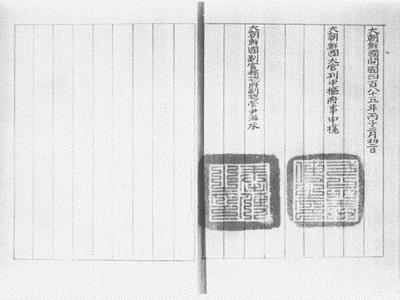 大朝鮮國開國四百八十五年丙子二月初二日
大朝鮮國大官判中樞府事申櫶
大朝鮮國副官都摠府副摠管尹滋承